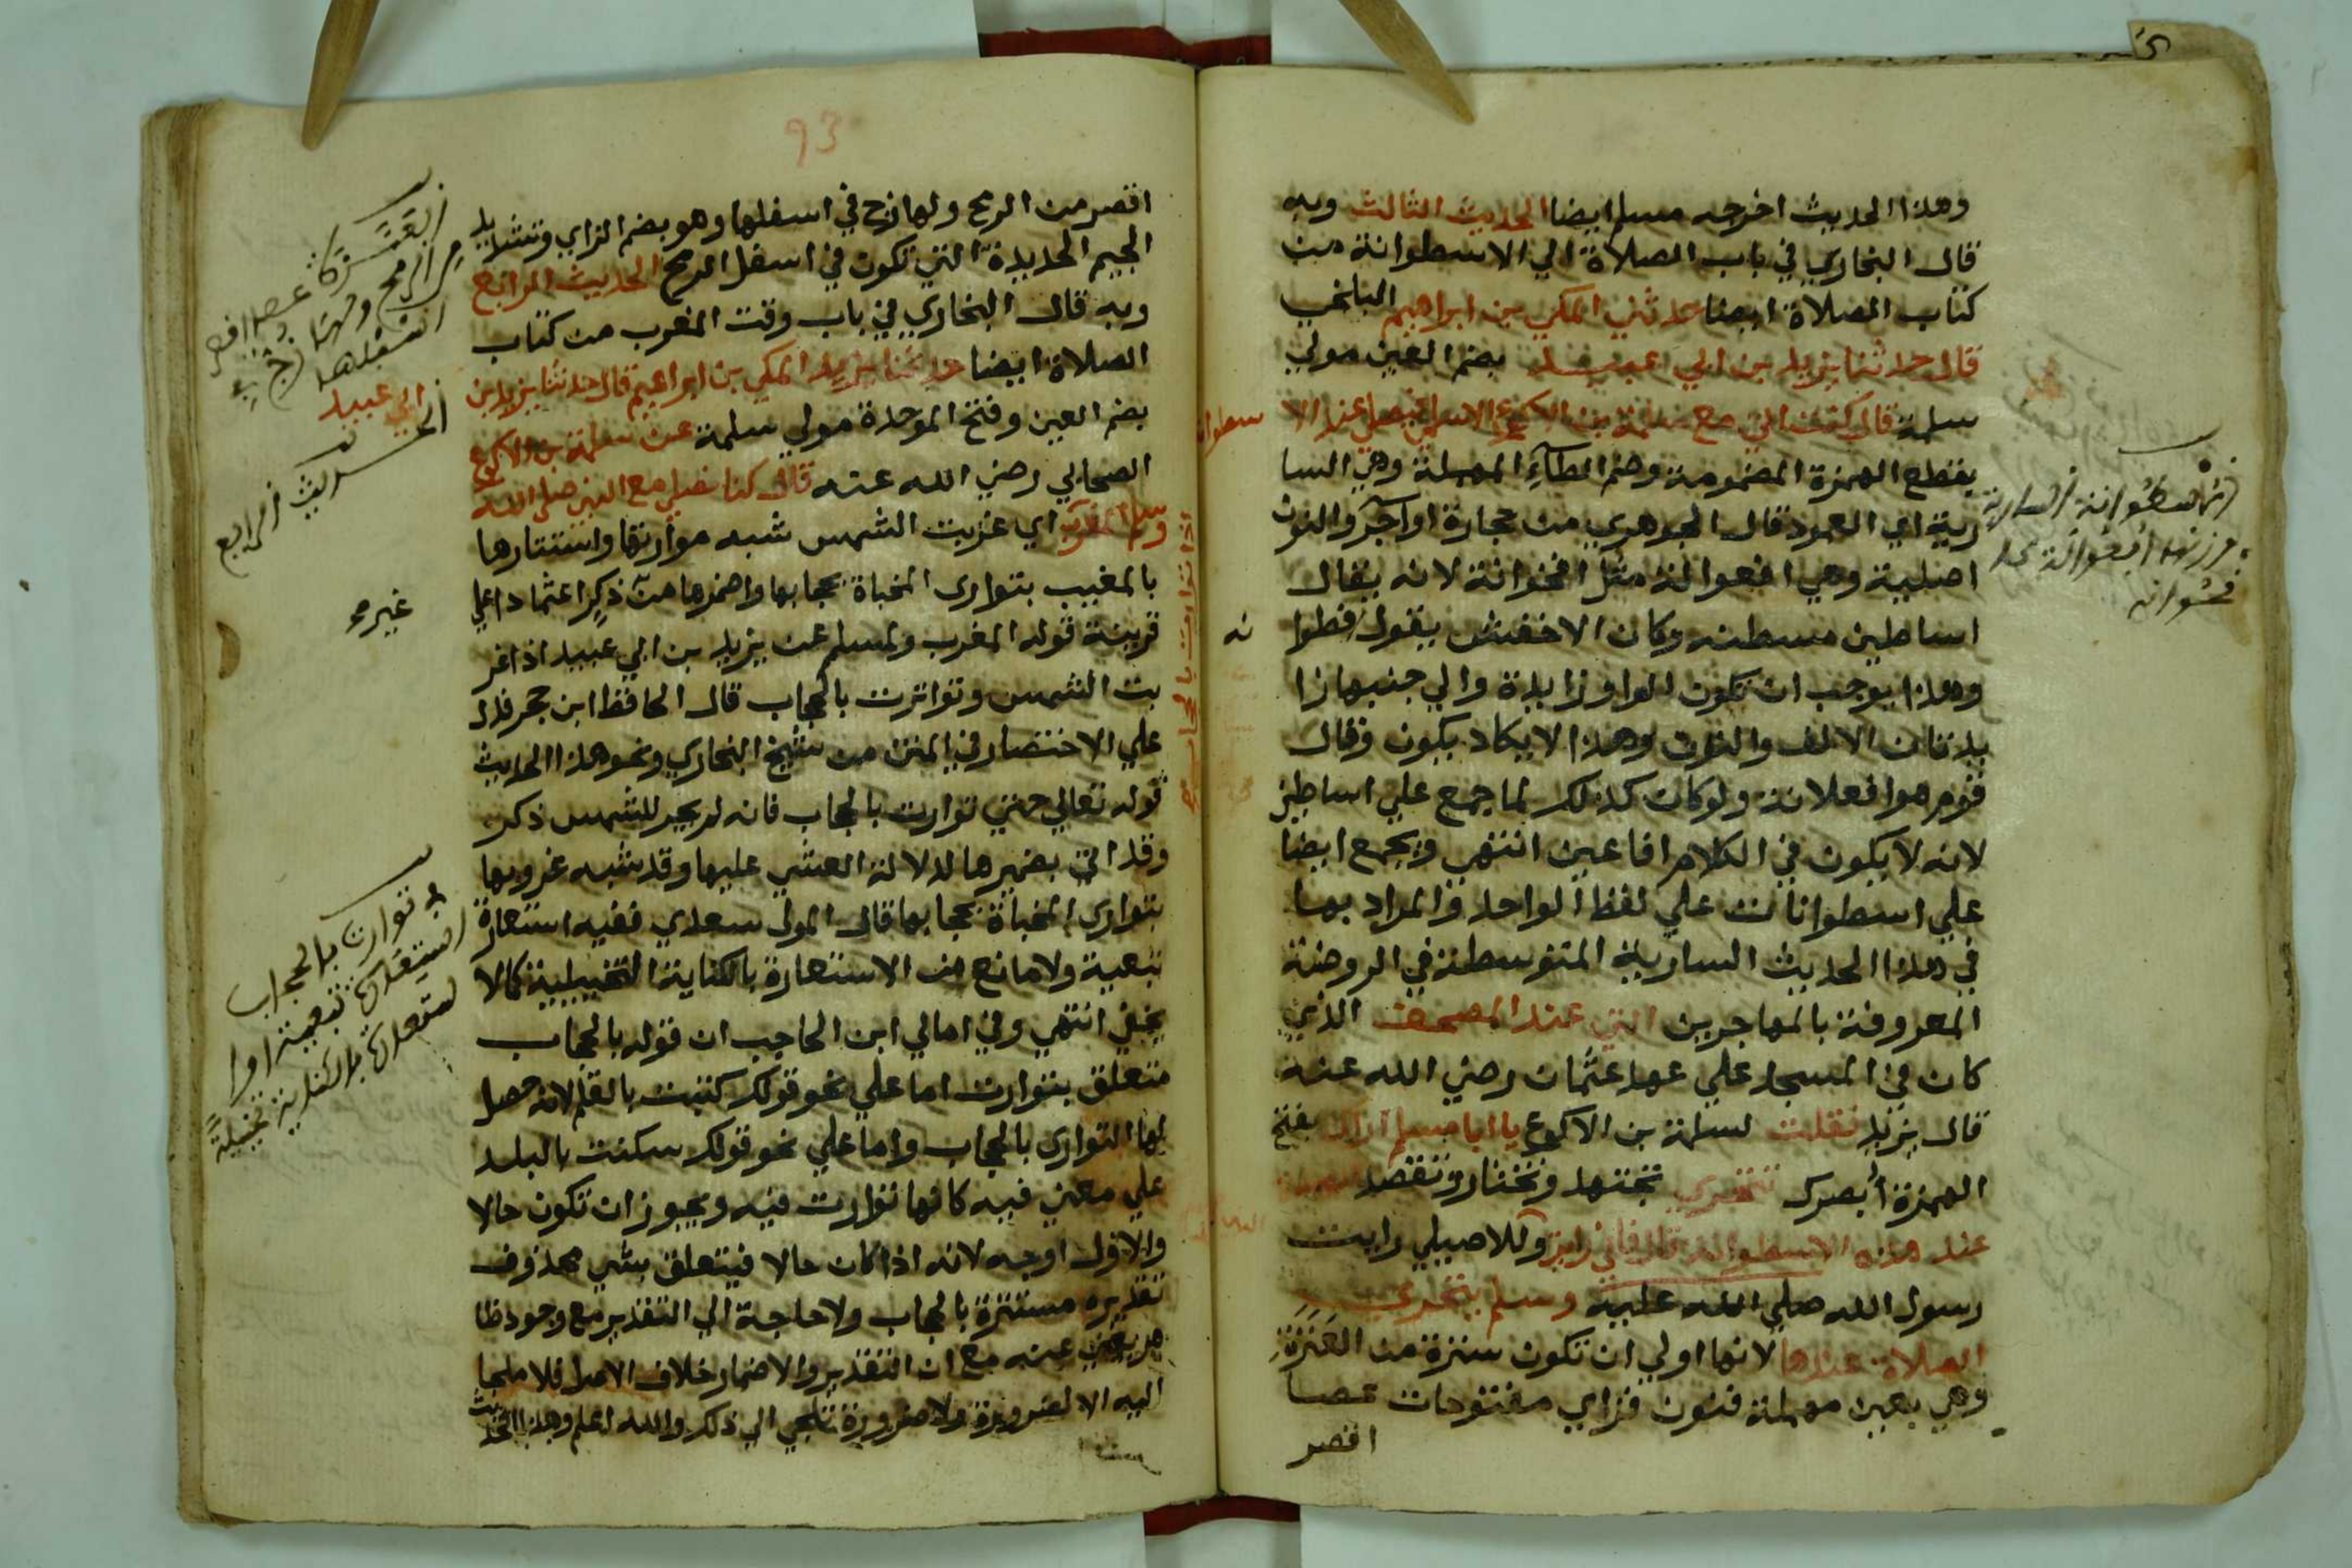 وهذا الحديث اخرجه مسلم ايضا الحديث الثالث وبه
قال البخاري في باب الصلاة الي الاسطوانة من
كتاب الصلاة ايضا حدثني المكي بن ابراهيم البلخي
قال حدثنا يزيد بن ابي عبيد بضم العين مولي
سلمة قال كنت اتي مع سلمة بن الاكوع الاسلمي فيصلي عند الا
سطوانة
بقطع الهمزة المضمومة وضم الطاء المهملة وهي السا
رية اي العمود قال الجوهري من حجارة او آجر والنون
اصلية وهي افعوالة مثل اقحوانة لانه يقال
اساطين مسطنه وكان الاخفش يقول فطوا
نه
وهذا يوجب ان تكون الواو زايدة والي جنبها زا
يدتان الالف والنون وهذا لا يكاد يكون وقال
قوم هو افعلانة ولو كان كذلك لما جمع علي اساطين
لانه لا يكون في الكلام افاعين انتهي ويجمع ايضا
علي اسطوانات علي لفظ الواحد والمراد بها
في هذا الحديث السارية المتوسطة في الروضة
المعروفة بالمهاجرين التي عند المصحف الذي
كان في المسجد علي عهد عثمان رضي الله عنه
قال يزيد فقلت لسلمة بن الاكوع يا ابا مسلم اراك بفتح
الهمزة أبصرك تتحري تجتهد وتختار وتقصد
عند هذه الاسطوانة قال فاني رايت وللاصيلي رايت
رسول الله صلي الله عليه وسلم يتحري
الصلاة عندها لانها اولي ان تكون سترة من العَنَزَةِ
وهي بعين مهملة فنون فزاي مفتوحات عصا
اقصر
93
اقصر من الرمح ولها زج في اسفلها وهو بضم الزاي وتشديد
الجيم الحديدة التي تكون في اسفل الرمح الحديث الرابع
وبه قال البخاري في باب وقت المغرب من كتاب
الصلاة ايضا حدثنا المكي بن ابراهيم قال حدثنا يزيد بن
ابي عبيد
بضم العين وفتح الموحدة مولي سلمة عن سلمة بن الاكوع
الصحابي رضي الله عنه قال كنا نصلي مع النبي صلي الله
وسلم المغرب اي غربت الشمس شبه مواراتها واستتارها
اذا توارت بالحجاب
بالمغيب بتواري المخباة بحجابها واضمرها من غير ذكر اعتمادا علي
قرينة قوله المغرب ولمسلم عن يزيد بن ابي عبيد اذا غر
بت الشمس وتواترت بالحجاب قال الحافظ ابن حجر فدل
علي الاختصار في المتن من شيخ البخاري ونحو هذا الحديث
قوله تعالي حتي توارت بالحجاب فانه لم يجر للشمس ذكر
وقد اتي بضميرها لدلالة العشي عليها وقد شبه غروبها
بتواري المخباة بحجابها قال المولي سعدي ففيه استعارة
تبعية ولا مانع من الاستعارة بالكناية التخييلية كما لا
يخفي انتهي وفي امالي ابن الحاجب ان قوله بالحجاب
متعلق بتوارت اما علي نحو قولك كتبت بالقلم لانه حصل
لها التواري بالحجاب واما علي نحو قولك سكنت بالبلد
علي معني فيه كانها توارت فيه ويجوز ان تكون حالا
والاول اوجه لانه اذا كان حالا فيتعلق بشي محذوف
تقديره مستترة بالحجاب ولا حاجة الي التقدير مع وجود ظا
هر يغني عنه مع ان التقدير والاضمار خلاف الاصل فلا ملجا
اليه الا لضرورة ولا ضرورة تلجي الي ذلك والله اعلم وهذا الحديث
الحديث الرابع
توارت بالحجاب